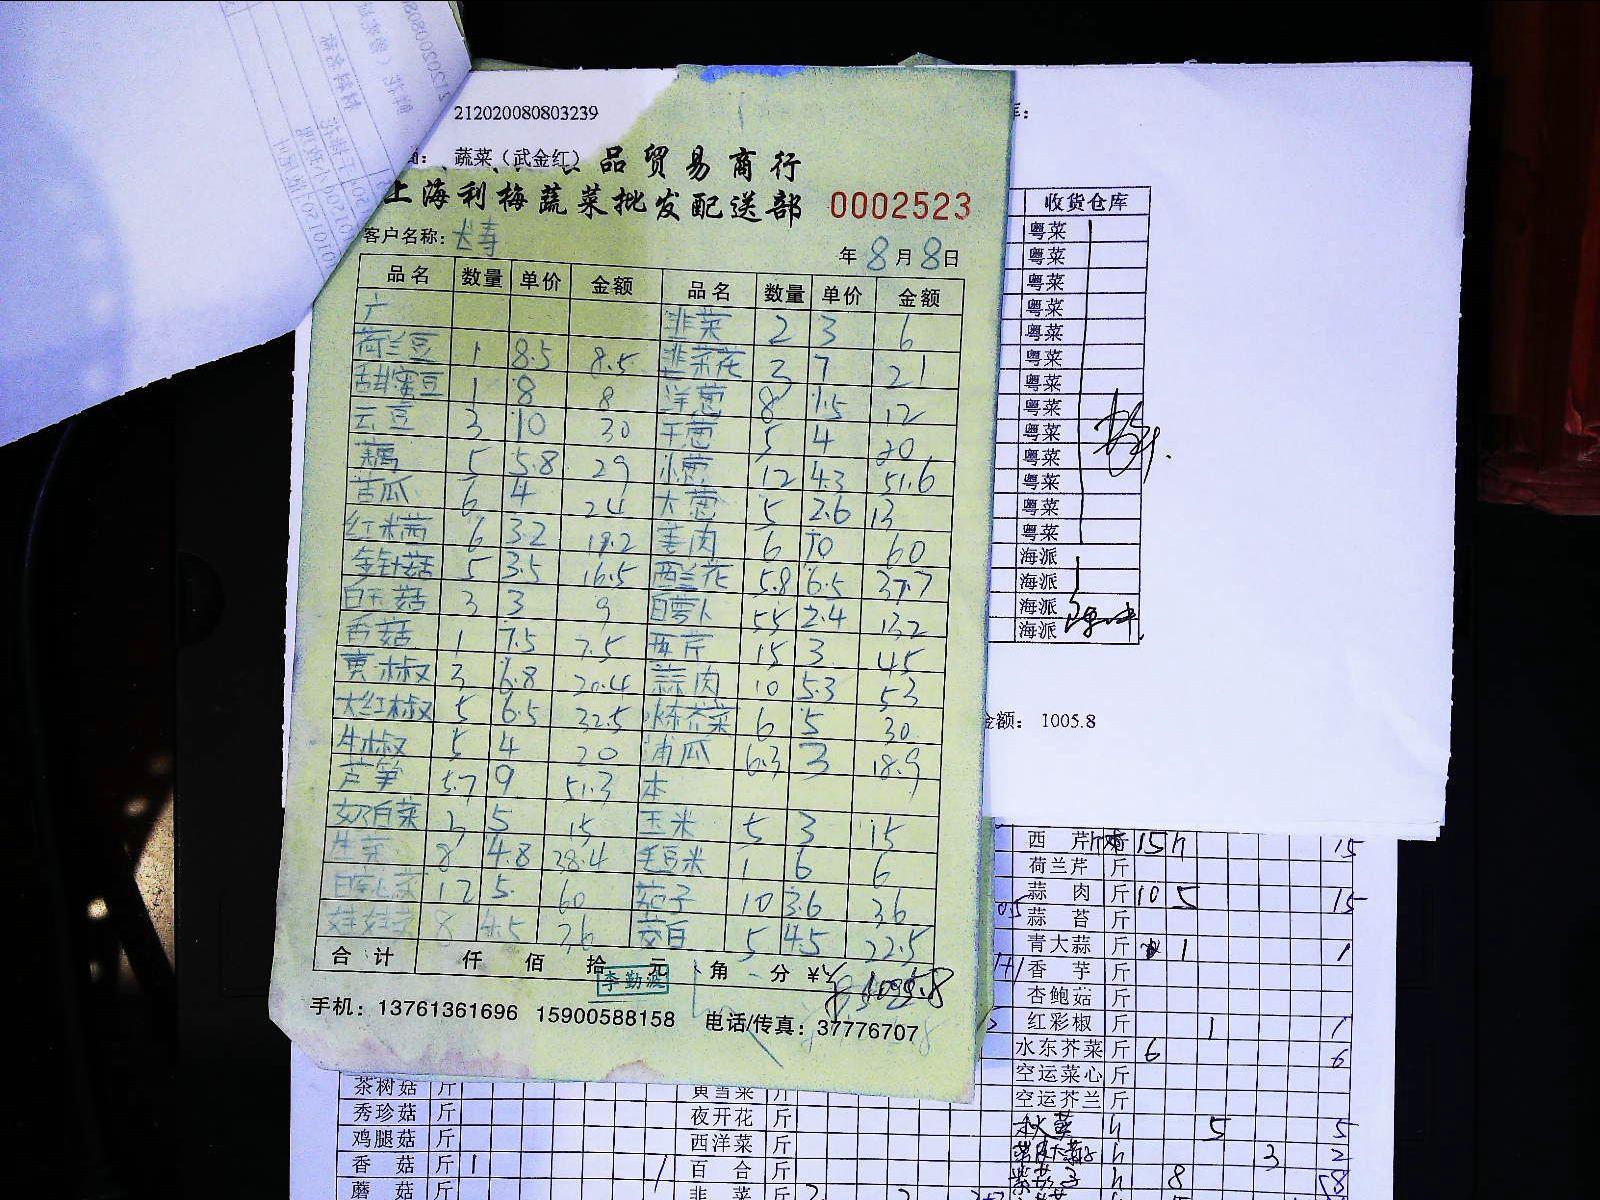 212020080803239
蔬菜（武金红）
品贸易商行
上海利梅蔬菜批发配送部 0002523
客户名称：长寿
年8月8日
品名 数量 单价 金额 品名 数量 单价 金额
广 韭菜 2 3 6
荷兰豆 1 8.5 8.5 韭菜花 3 7 21
甜蜜豆 1 8 8 洋葱 8 1.5 12
云豆 3 10 30 干葱 5 4 20
藕 5 5.8 29 小葱 12 4.3 51.6
苦瓜 6 4 24 大葱 5 2.6 13
红米茜 6 3.2 19.2 姜肉 6 10 60
金针菇 5 3.5 16.5 西兰花 5.8 6.5 37.7
白玉菇 3 3 9 白萝卜 55 2.4 132
香菇 1 7.5 7.5 西芹 15 3 45
黄椒 3 6.8 20.4 蒜肉 10 5.3 53
大红椒 5 6.5 32.5 水东芥菜 6 5 30
牛椒 5 4 20 浦瓜 6.3 3 18.9
芦笋 5.7 9 51.3 本
奶白菜 3 5 15 玉米 5 3 15
生菜 8 4.8 38.4 毛豆米 1 6 6
12 5 60 茄子 10 3.6 36
娃娃菜 8 4.5 36 茭白 5 4.5 22.5
合计 仟 佰 拾 元 角 分 ¥
李勤波
手机：13761361696 15900588158 电话/传真：37776707
收货仓库
粤菜
粤菜
粤菜
粤菜
粤菜
粤菜
粤菜
粤菜
粤菜
粤菜
粤菜
粤菜
粤菜
海派
海派
海派
海派
金额： 1005.8
西芹 15 15
荷兰芹 斤
蒜肉 斤 10 5 15
蒜苔 斤
青大蒜 斤 1 1
香芋 斤
杏鲍菇 斤
红彩椒 斤 1 1
水东芥菜 斤 6 6
空运菜心 斤
空运芥兰 斤
5 5
3
8
茶树菇 斤
秀珍菇 斤 夜开花 斤
鸡腿菇 斤 西洋菜 斤
香菇 斤 1 1 百合 斤
蘑菇 斤 韭菜 斤